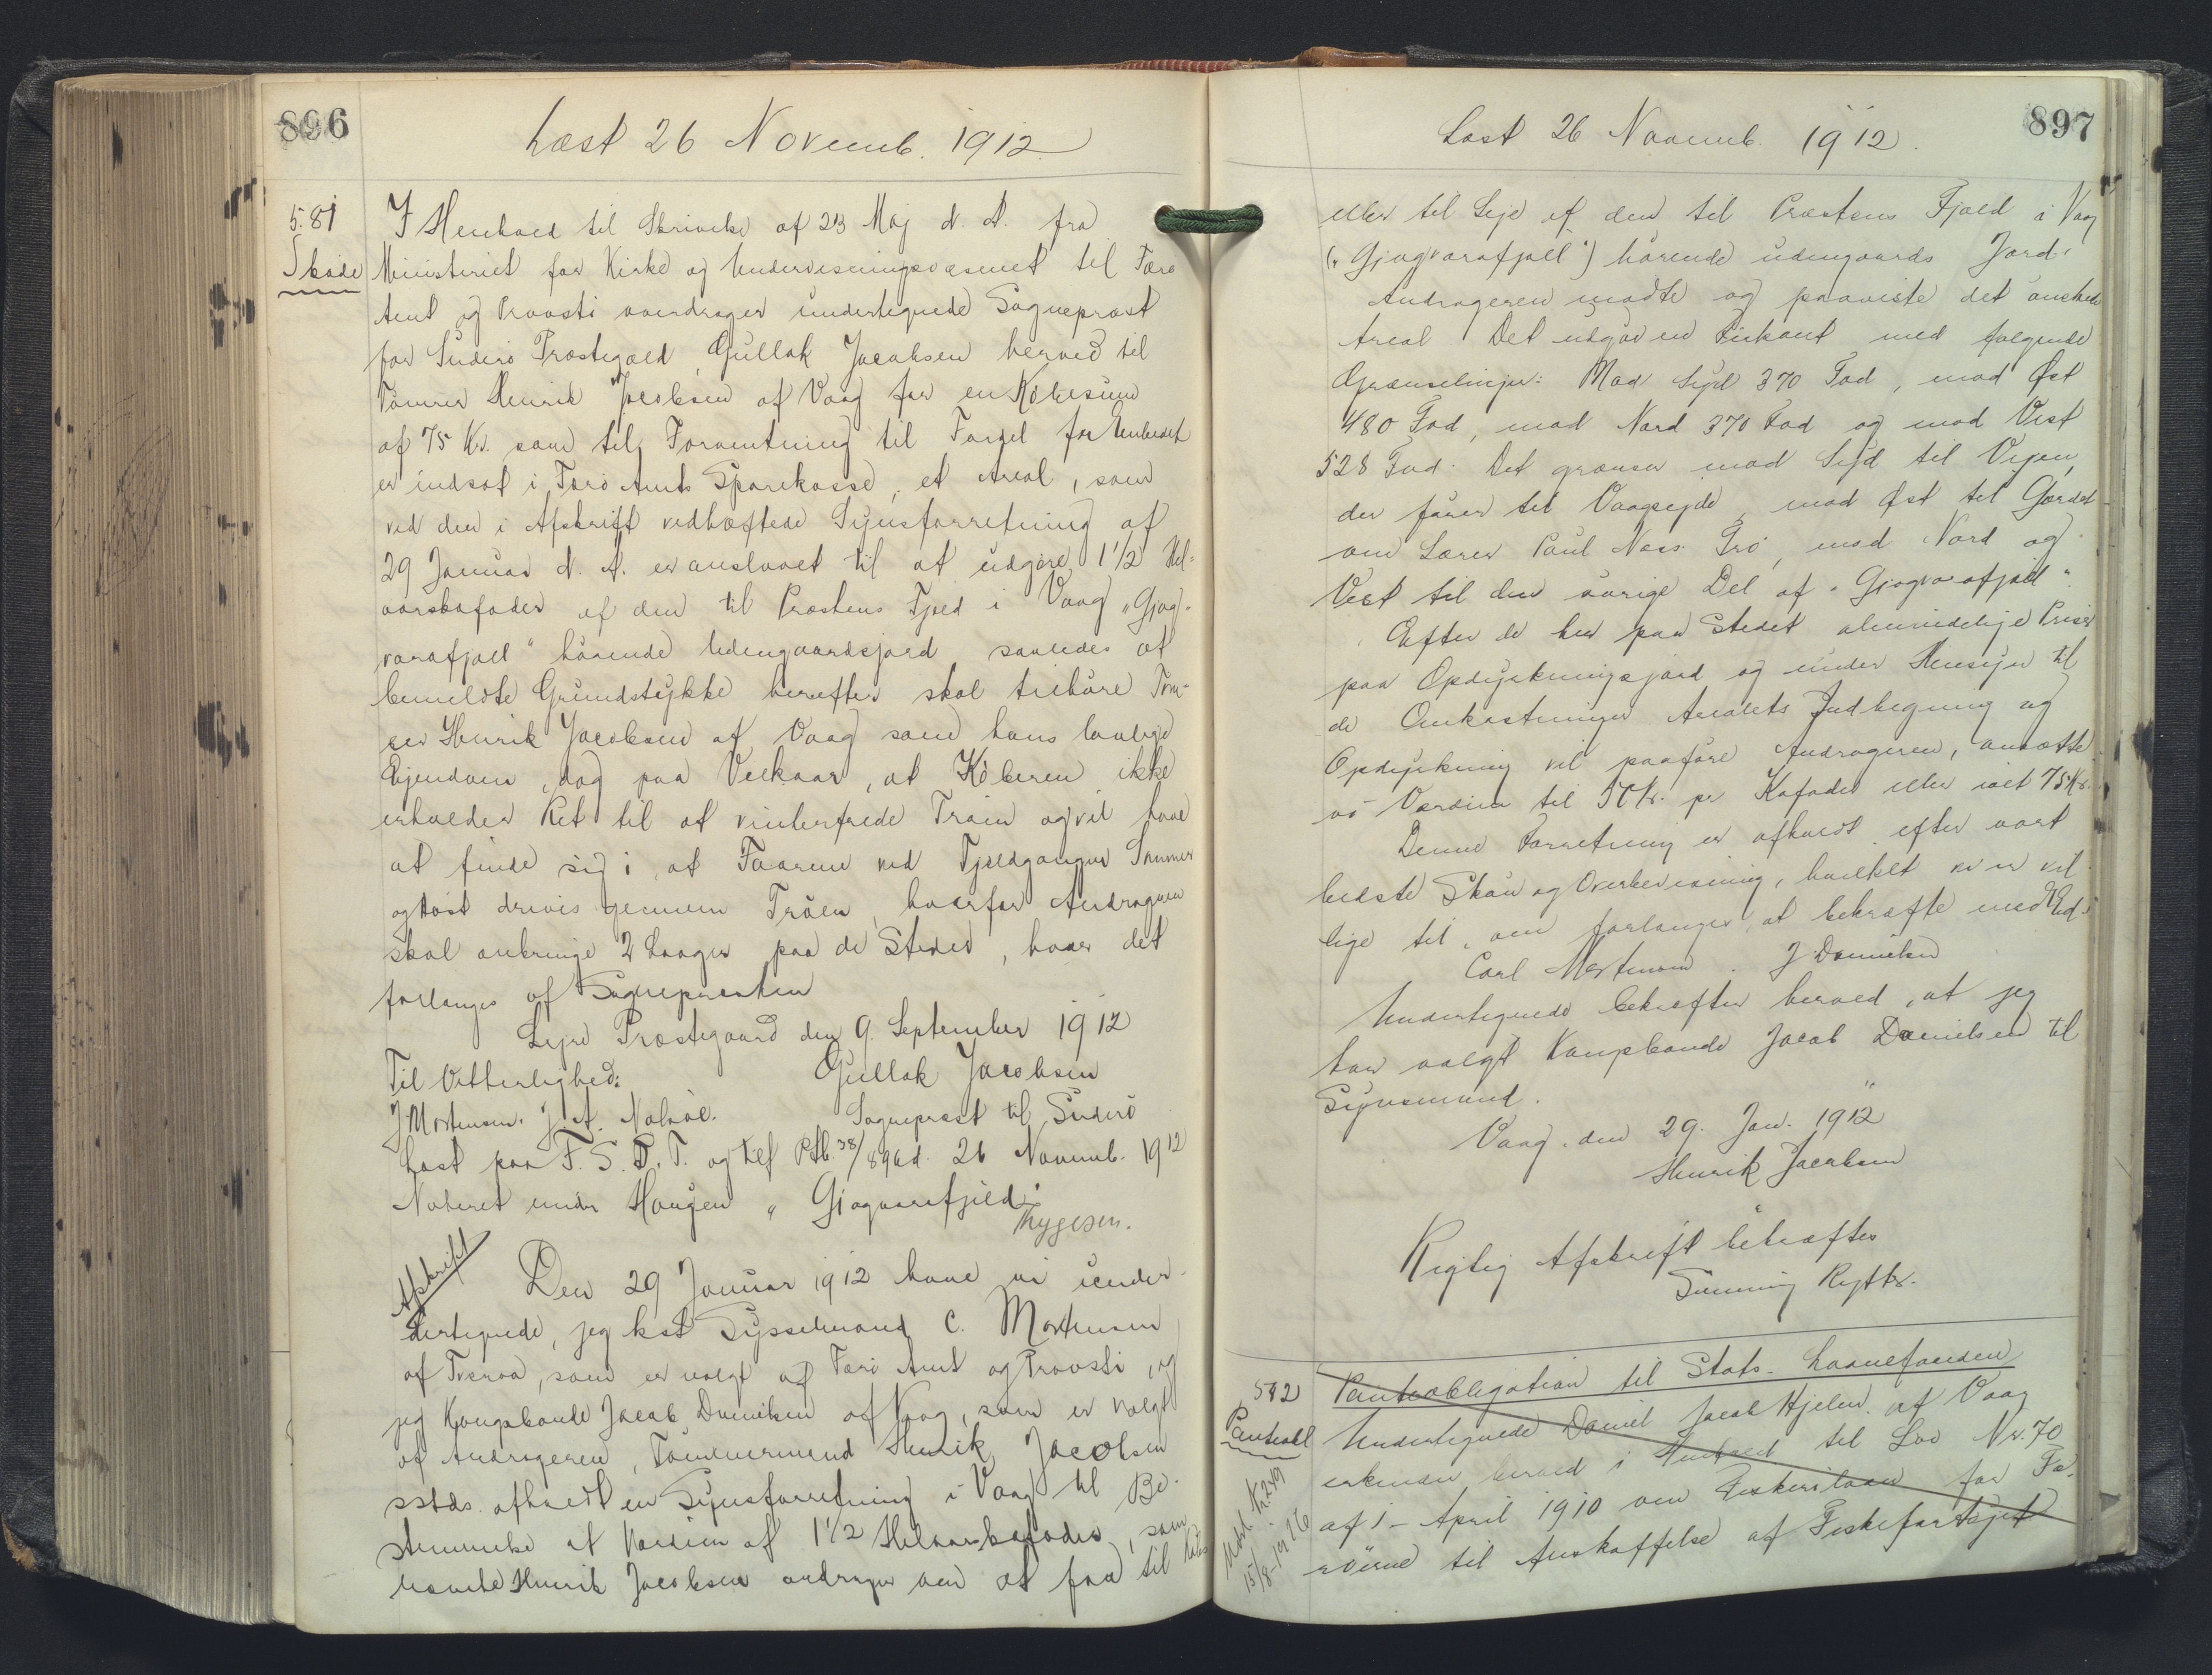 896
Læst 26 Novemb. 1912
581
Skøde
I Henhold til Skrivelse af 23 Maj d. A. fra
Ministeriet for Kirke og Undervisningsvæsenet til Færø
Amt og Provsti overdrager undertegnede Sognepræst
for Suderø Præstegæld, Gullak Jacobsen herved til
Tømrer Henrik Jacobsen af Vaag for en Købesum
af 75 Kr. som til Forrentning til Fordel for Embedet
er indsat i Færø Amts Sparekasse, et Areal, som
ved den i Afskrift vedhæftede Synsforretning af
29 Januar d. A. er anslaaet til at udgøre 1 1/2 Hel-
aarskofoder af den til Præstens Fjeld i Vaag "Gjog-
varafjall" hørende Udengaardsjord saaledes at
bemeldte Grundstykke herefter skal tilhøre Tøm-
rer Henrik Jacobsen af Vaag som hans lovlige
Ejendom, dog paa Vilkaar, at Køberen ikke
erholder Ret til at vinterfrede Trøen og vil have
at finde sig i, at Faarene ved Fjeldgangen Sommer
og Høst drives gennem Trøen, hvorfor Andrageren
skal anbringe 2 Laager paa de Steder, hvor det
forlanges af Sognepræsten
Præstegaard den 9. September 1912
Til Vitterlighed: Gullak Jacobsen
J Mortensen. J. A. Nolsøe. Sognepræst til Suderø
Læst paa F. S. D. T. og tilf Ptb. 38/896 d. 26 Novemb. 1912
Noteret under Haugen "Gjogvarafjeld"
Thygesen.
Afskrift
Den 29 Januar 1912 have vi under-
tertegnede, jeg kst Sysselmand C. Mortensen
af Tveraa, som er valgt af Færø Amt og Provsti, og
jeg Kongsbonde Jacob Danielsen af Vaag, som er valgt
af Andrageren, Tømmermand Henrik Jacobsen
sstds. afholdt en Synsforretning i Vaag til Be-
stemmelse af Værdien af 1 1/2 Helaarskofoder, som
nævnte Henrik Jacobsen andrager om at faa til Købs
897
Læst 26 Novemb. 1912.
eller til Leje af den til Præstens Fjæld i Vaag
("Gjogvarafjall") hørende udengaards Jord.
Andrageren mødte og paaviste det ønskede
Areal. Det udgør en Firkant med følgende
Grænselinjer: Mod Syd 370 Fod, mod Øst
480 Fod, mod Nord 370 Fod og mod Vest
528 Fod. Det grænser mod Syd til Vejen,
der fører til Vaagsejde, mod Øst til Gærdet
om Lærer Paul Næs. Trø, mod Nord og
Vest til den øvrige Del af "Gjogvarafjall".
Efter de her paa Stedet almindelige Priser
paa Opdyrkningsjord og under Hensyn til
de Omkostninger Arealets Indhegning og
Opdyrkning vil paaføre Andrageren, ansætte
vi Værdien til 50 Kr. pr Kofoder eller ialt 75 Kr.
Denne Forretning er afholdt efter vort
bedste Skøn og Overbevisning, hvilket vi er vil-
lige til, om forlanges, at bekræfte med Ed.
Carl Mortensen. J. Danielsen
Undertegnede bekræfter herved, at jeg
har valgt Kongsbonde Jacob Danielsen til
Synsmand.
Vaag, den 29. Jan. 1912
Henrik Jacobsen
Rigtig Afskrift bekræftes
Rytter.
582
Panteobl
15/8-1926
Panteobligation til Stats-Laanefonden
Undertegnede Daniel Jacob Hjelm af Vaag
erkender herved i Henhold til Lov Nr. 70
af 1- April 1910 om Fiskerilaan for Fæ-
røerne til Anskaffelse af Fiskefartøjet